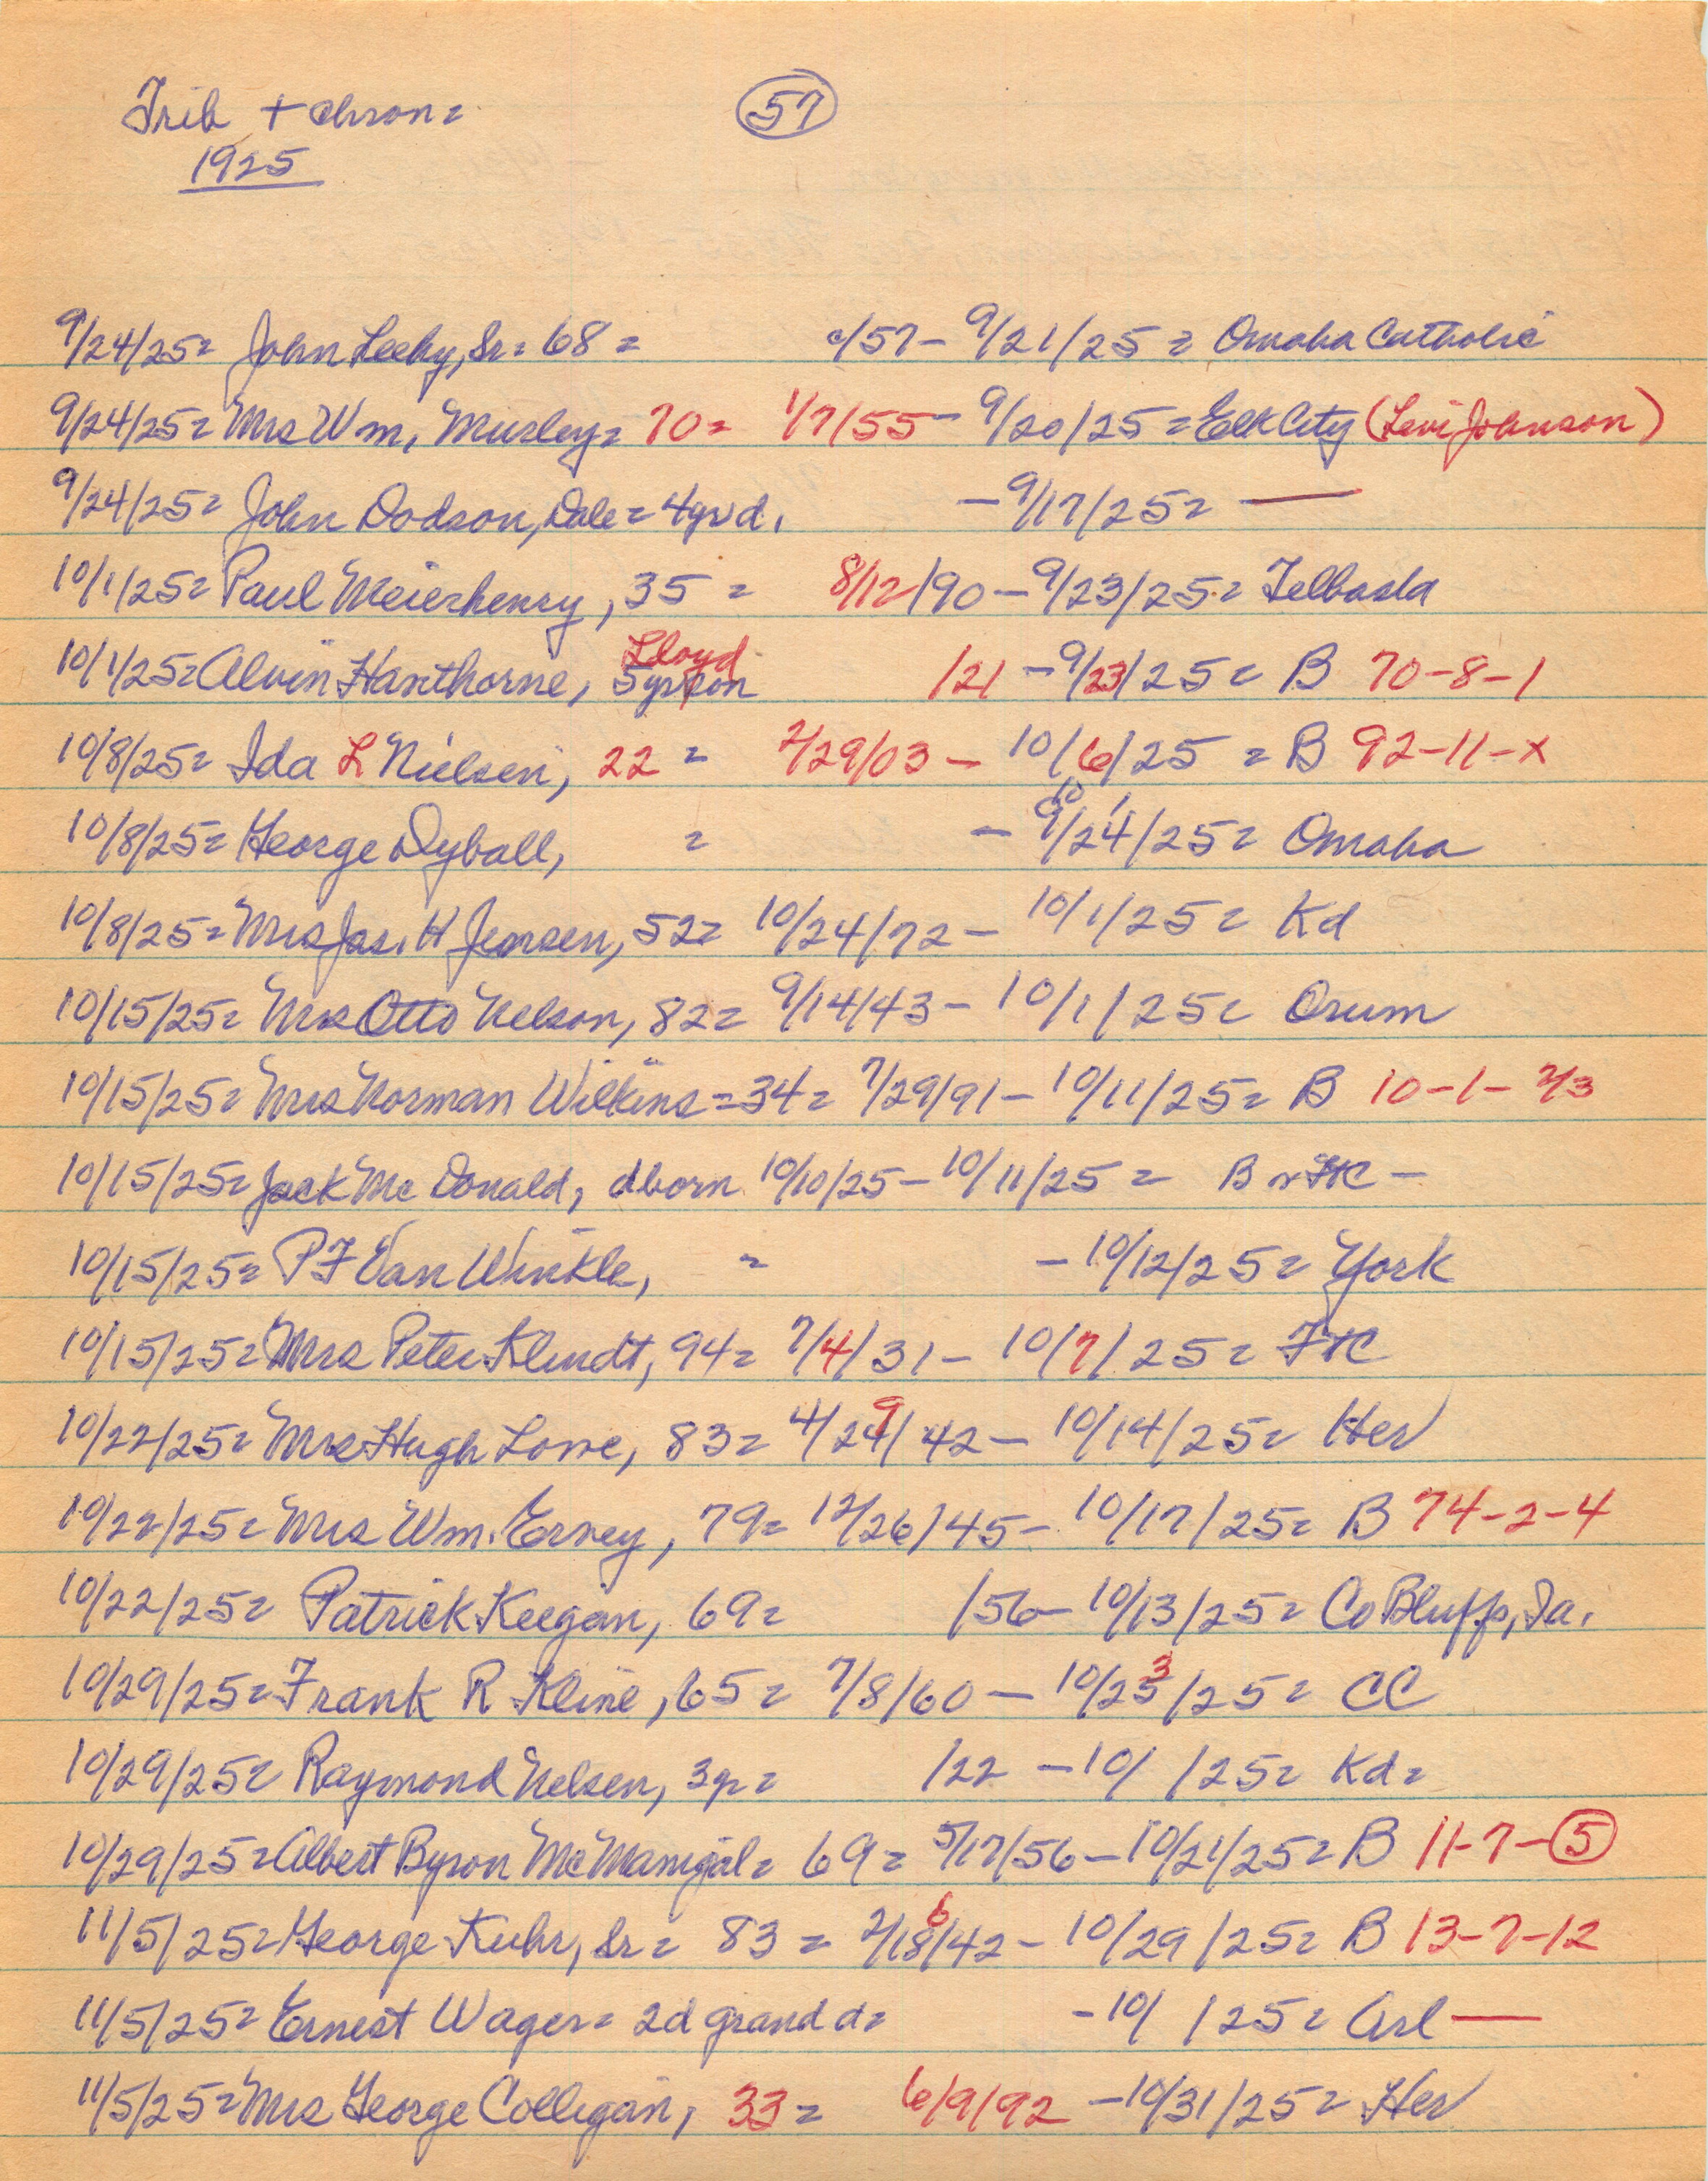 Trib + chron =
57
1925
9/24/25= John Leehy, Sr= 68 = c/57- 9/21/25 = Omaha Catholic
9/24/25= Mrs Wm. Murley= 70= 1/7/55- 9/20/25 = Elk City (Levi Johnson)
9/24/25= John Dodson, Dale= 4yr d. -9/17/25= —
10/1/25= Paul Meierhenry, 35 = 8/12/90-9/23/25= Telbasta
Lloyd
10/1/25= Alvin Hawthorne, 5yr son /21 -9/23/25= B 70-8-1
10/8/25= Ida L Nielsen, 22 = 2/29/03 - 10/6/25 = B 92-11-x
10 1
10/8/25= George Dyball, = - 9/24/25= Omaha
10/8/25= Mrs Jas. H Jensen, 52= 10/24/72- 10/1/25= Kd
10/15/25= Mrs Otto Nelson, 82= 9/14/43- 10/1/25= Orum
10/15/25= Mrs Norman Wilkins=34= 7/29/91- 10/11/25= B 10-1- 2/3
10/15/25= Jack McDonald, d born 10/10/25-10/11/25 = B or FtC -
10/15/25= P F Van Winkle, = -10/12/25= York
10/15/25= Mrs Peter Klindt, 94= 7/4/31- 10/7/25= FtC
9
10/22/25= Mrs Hugh Lowe, 83= 4/24/42- 10/14/25= Her
10/22/25= Mrs Wm. Erney, 79= 12/26/45- 10/17/25= B 74-2-4
10/22/25= Patrick Keegan, 69= /56- 10/13/25= Co Bluffs, Ia.
3
10/29/25= Frank R Kline, 65= 7/8/60- 10/25/25= CC
10/29/25= Raymond Nelsen, 3yr= /22 -10/ /25= Kd=
10/29/25= Albert Byron McManigal= 69= 5/17/56-10/21/25= B 11-7-5
6
11/5/25= George Kuhr, Sr= 83 = 2/18/42- 10/29/25= B 13-7-12
11/5/25= Ernest Wager= 2d grand d= -10/ /25= Arl —
11/5/25= Mrs George Colligan, 33= 6/9/92 -10/31/25= Her